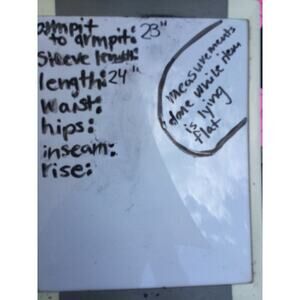 armpit
to armpit: 23"
Sleeve length:
length: 24"
waist:
hips:
inseam:
rise:
measurements
done white item
is lying
flat